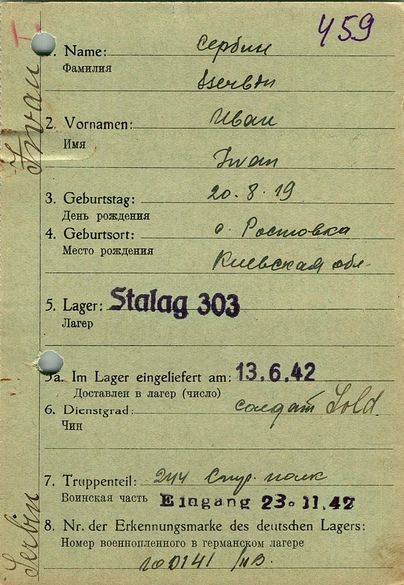 459
1. Name: Сербин
Фамилия
Sserbin
2. Vornamen: Иван
Имя
Iwan
3. Geburtstag: 20.8.19
День рождения
4. Geburtsort: с. Ростовка
Место рождения
Киевская обл.
5. Lager: Stalag 303
Лагер
5a. Im Lager eingeliefert am: 13.6.42
Доставлен в лагер (число)
6. Dienstgrad: солдат Sold.
Чин
7. Truppenteil: 244 полк
Воинская часть Eingang 23.11.42
8. Nr. der Erkennungsmarke des deutschen Lagers:
Номер военнопленного в германском лагере
Iwan
Serbin